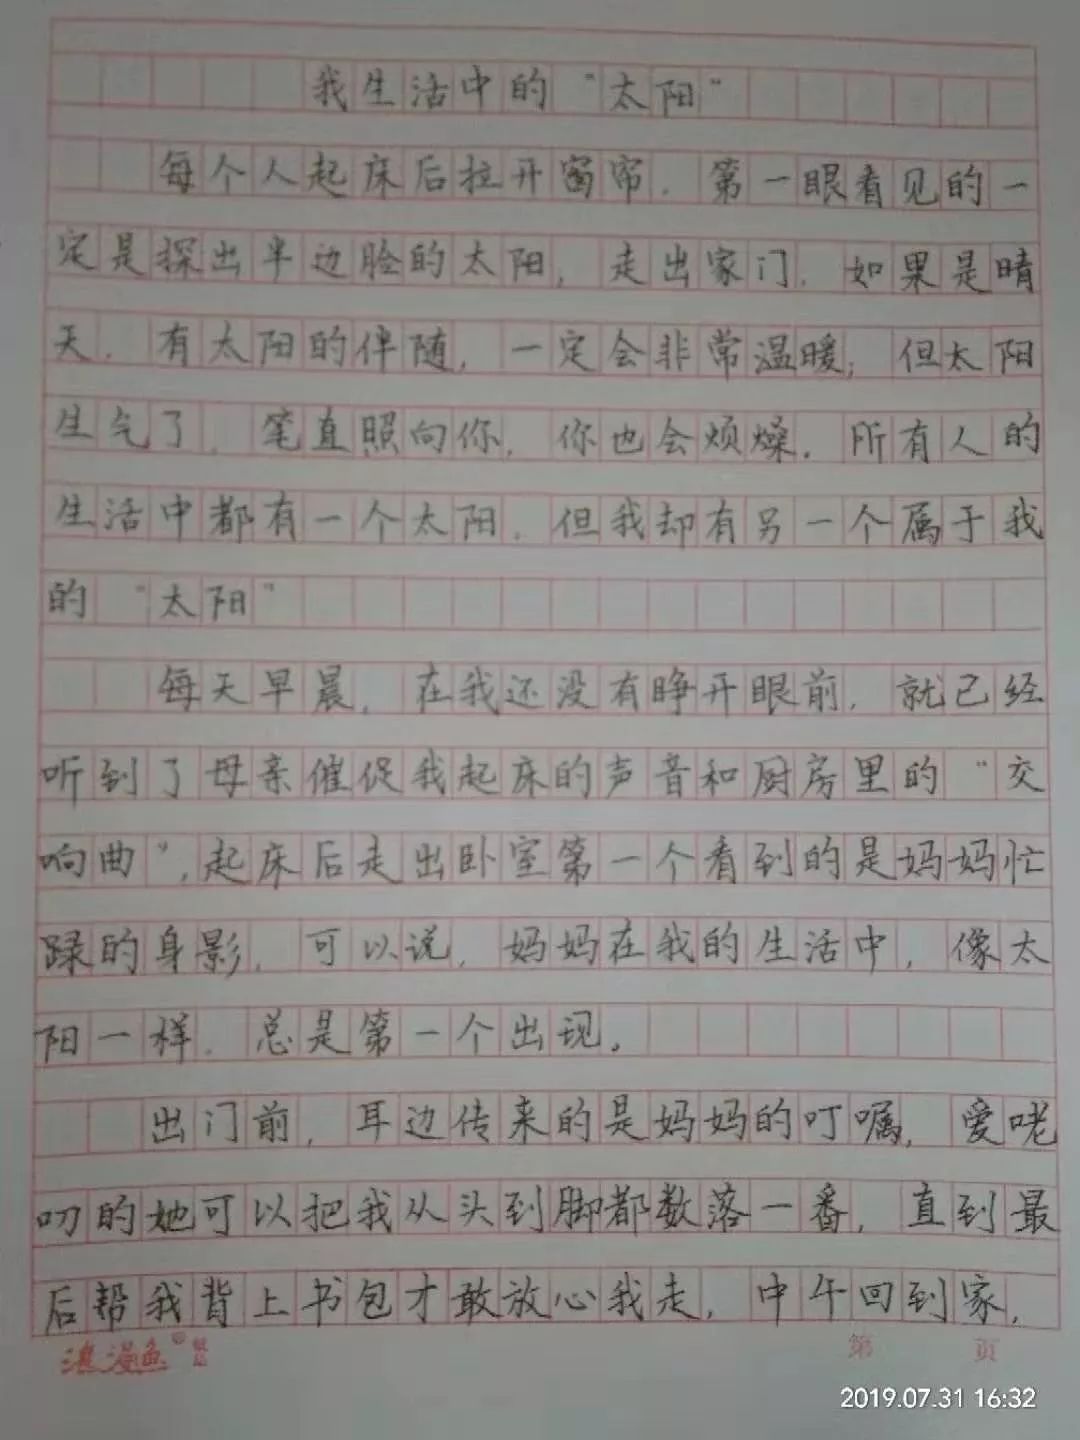 我生活中的“太阳”
每个人起床后拉开窗帘.第一眼看见的一
定是探出半边脸的太阳,走出家门.如果是晴
天.有太阳的伴随,一定会非常温暖;但太阳
生气了.笔直照向你,你也会烦燥.所有人的
生活中都有一个太阳.但我却有另一个属于我
的“太阳”
每天早晨,在我还没有睁开眼前.就已经
听到了母亲催促我起床的声音和厨房里的“交
响曲”,起床后走出卧室第一个看到的是妈妈忙
碌的身影.可以说,妈妈在我的生活中,像太
阳一样.总是第一个出现。
出门前,耳边传来的是妈妈的叮嘱,爱咾
叨的她可以把我从头到脚都数落一番,直到最
后帮我背上书包才敢放心我走.中午回到家.
浪漫鱼
第 页
2019.07.31 16:32